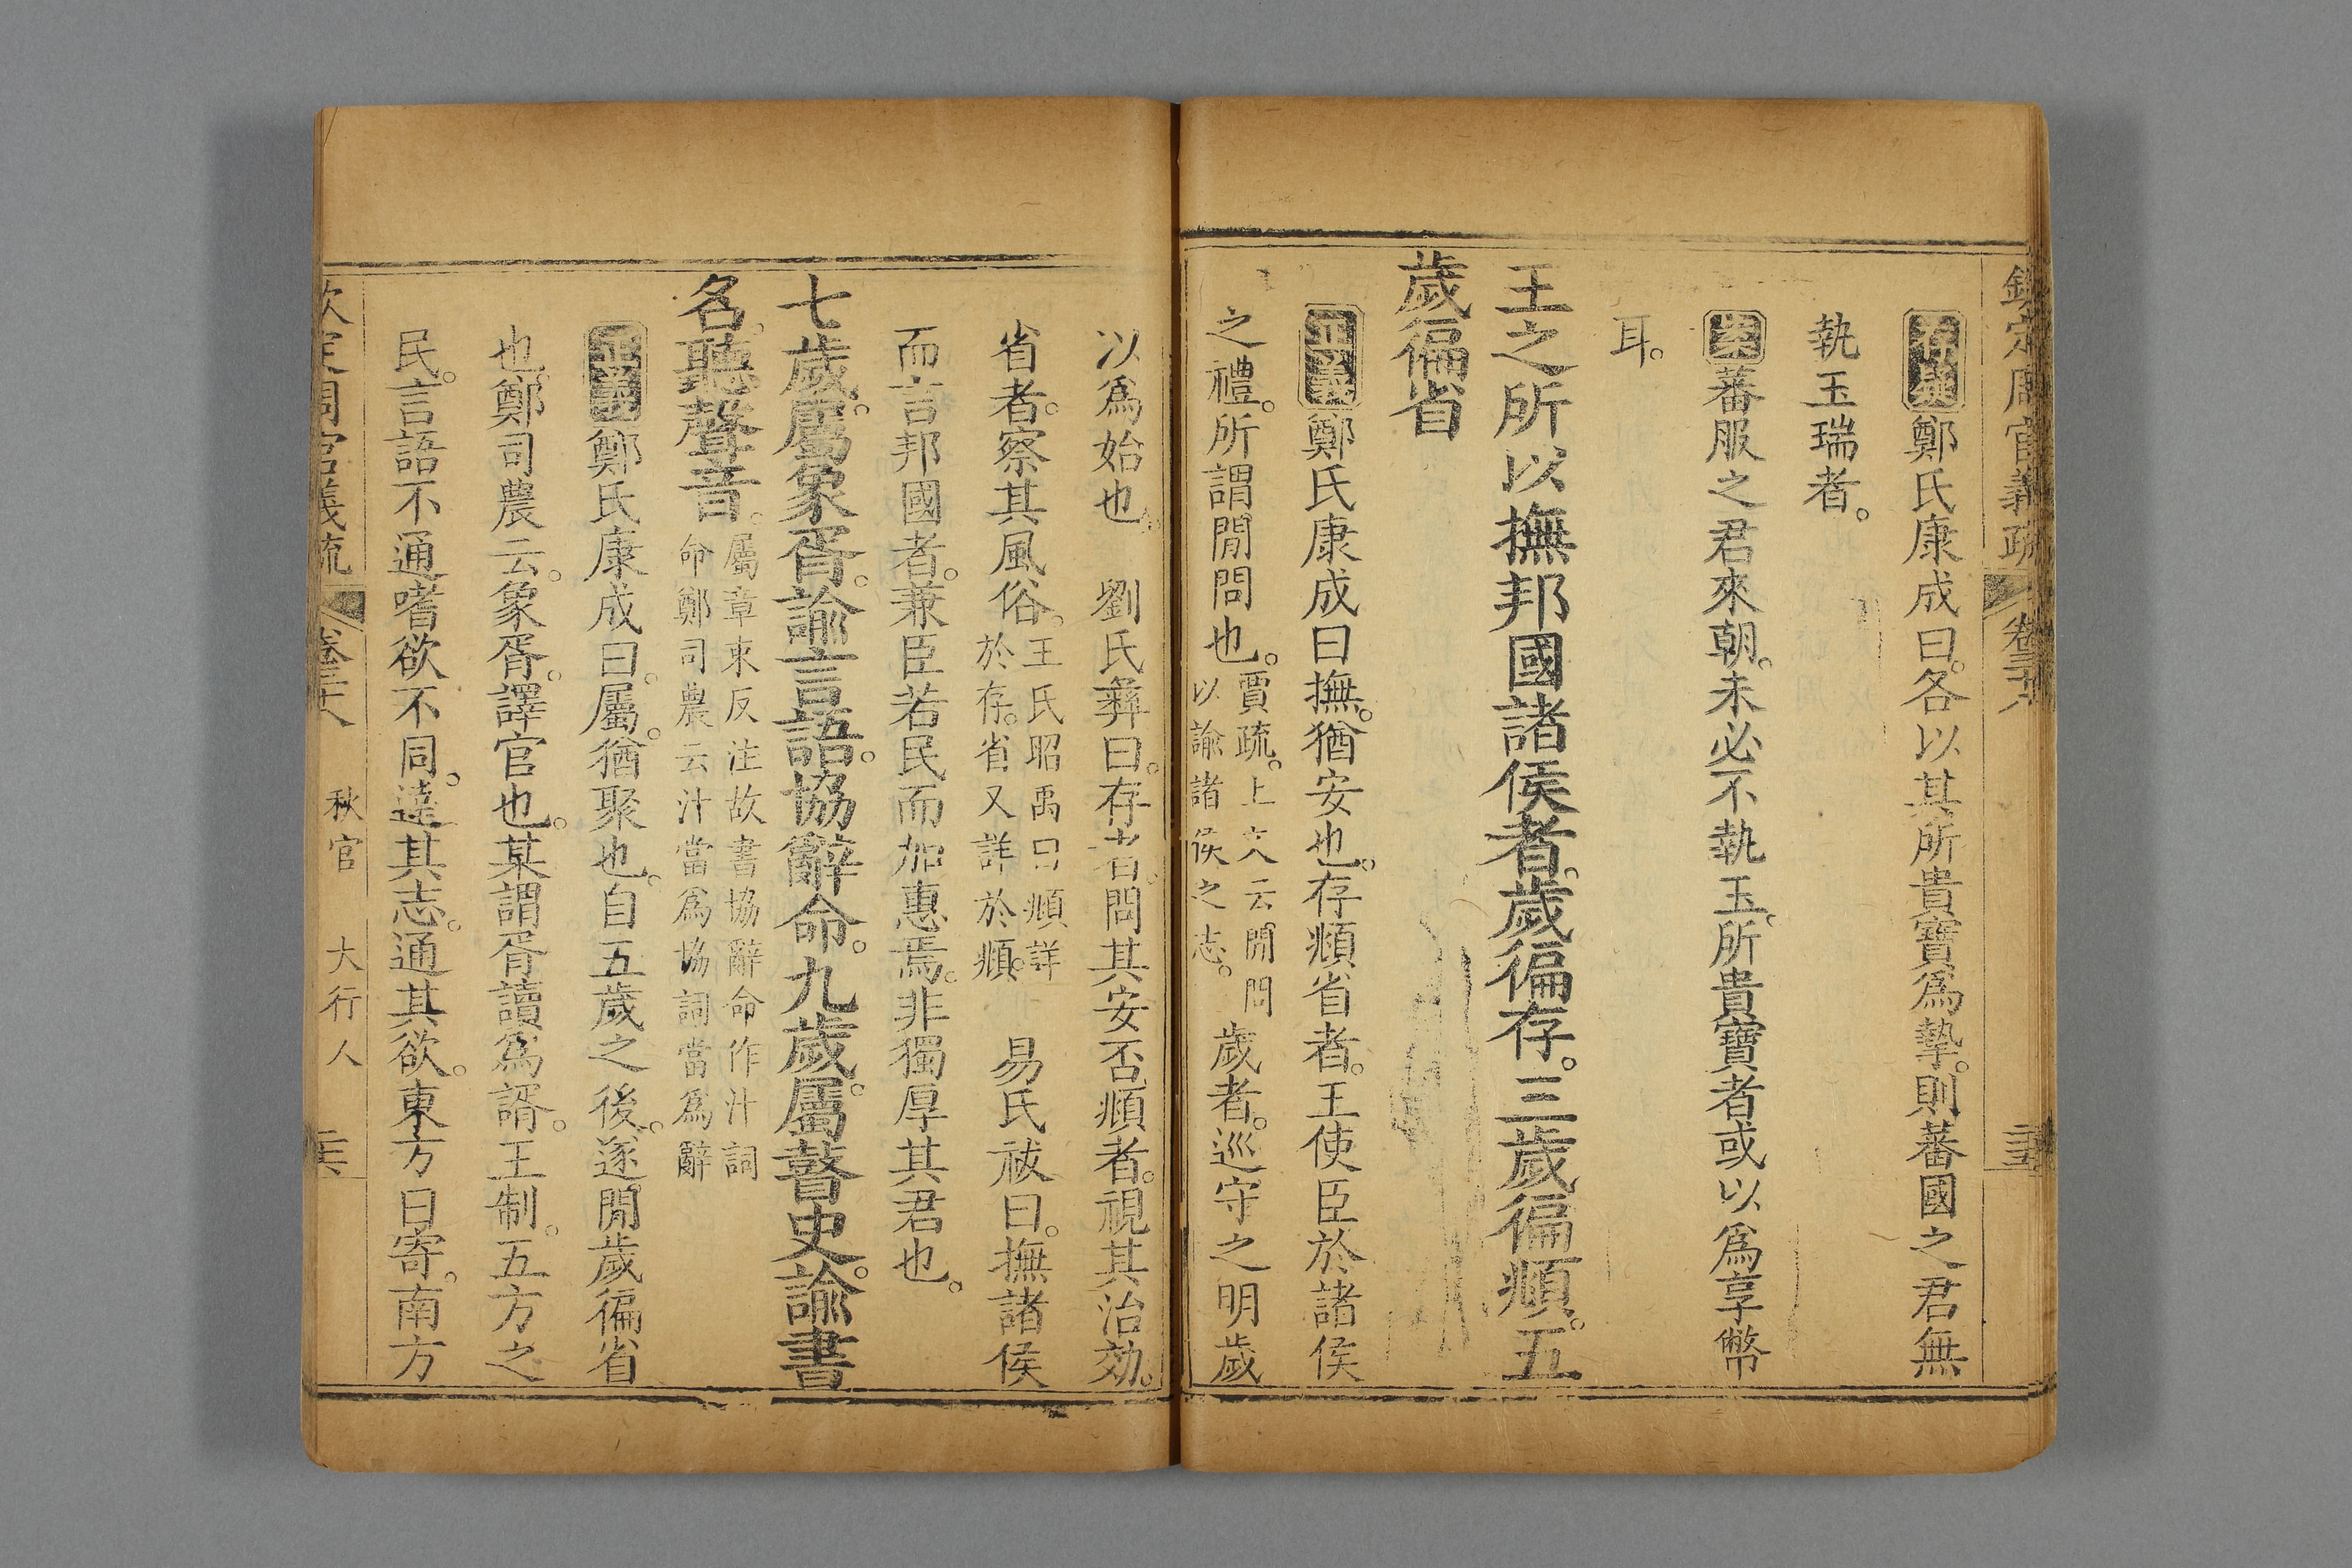 欽定周官義疏 卷三十八
鄭氏康成曰。各以其所貴寶爲摯。則蕃國之君無
執玉瑞者。
案蕃服之君來朝。未必不執玉。所貴寶者或以爲享幣
耳。
王之所以撫邦國諸侯者。歲徧存。三歲徧頫。五
歲徧省
正義鄭氏康成曰撫。猶安也。存頫省者。王使臣於諸侯
之禮。所謂閒問也。賈疏。上文云。閒問以諭諸侯之志。歲者。巡守之明歲
以爲始也。 劉氏彝曰。存者。問其安否頫者。視其治効。
省者。察其風俗。王氏昭禹曰頫詳於存。省又詳於頫。 易氏祓曰。撫諸侯
而言邦國者。兼臣若民而加惠焉。非獨厚其君也。
七歲。屬象胥。諭言語。協辭命。九歲。屬瞽史。諭書
名。聽聲音。屬章束反注故書協辭命作汁詞命鄭司農云汁當爲協詞當爲辭
正義鄭氏康成曰。屬。猶聚也。自五歲之後。遂閒歲徧省
也。鄭司農云。象胥。譯官也。某謂胥讀爲諝。王制。五方之
民。言語不通嗜欲不同。達其志。通其欲。東方曰寄。南方
欽定周官義疏 卷三十八 秋官 大行人 三六